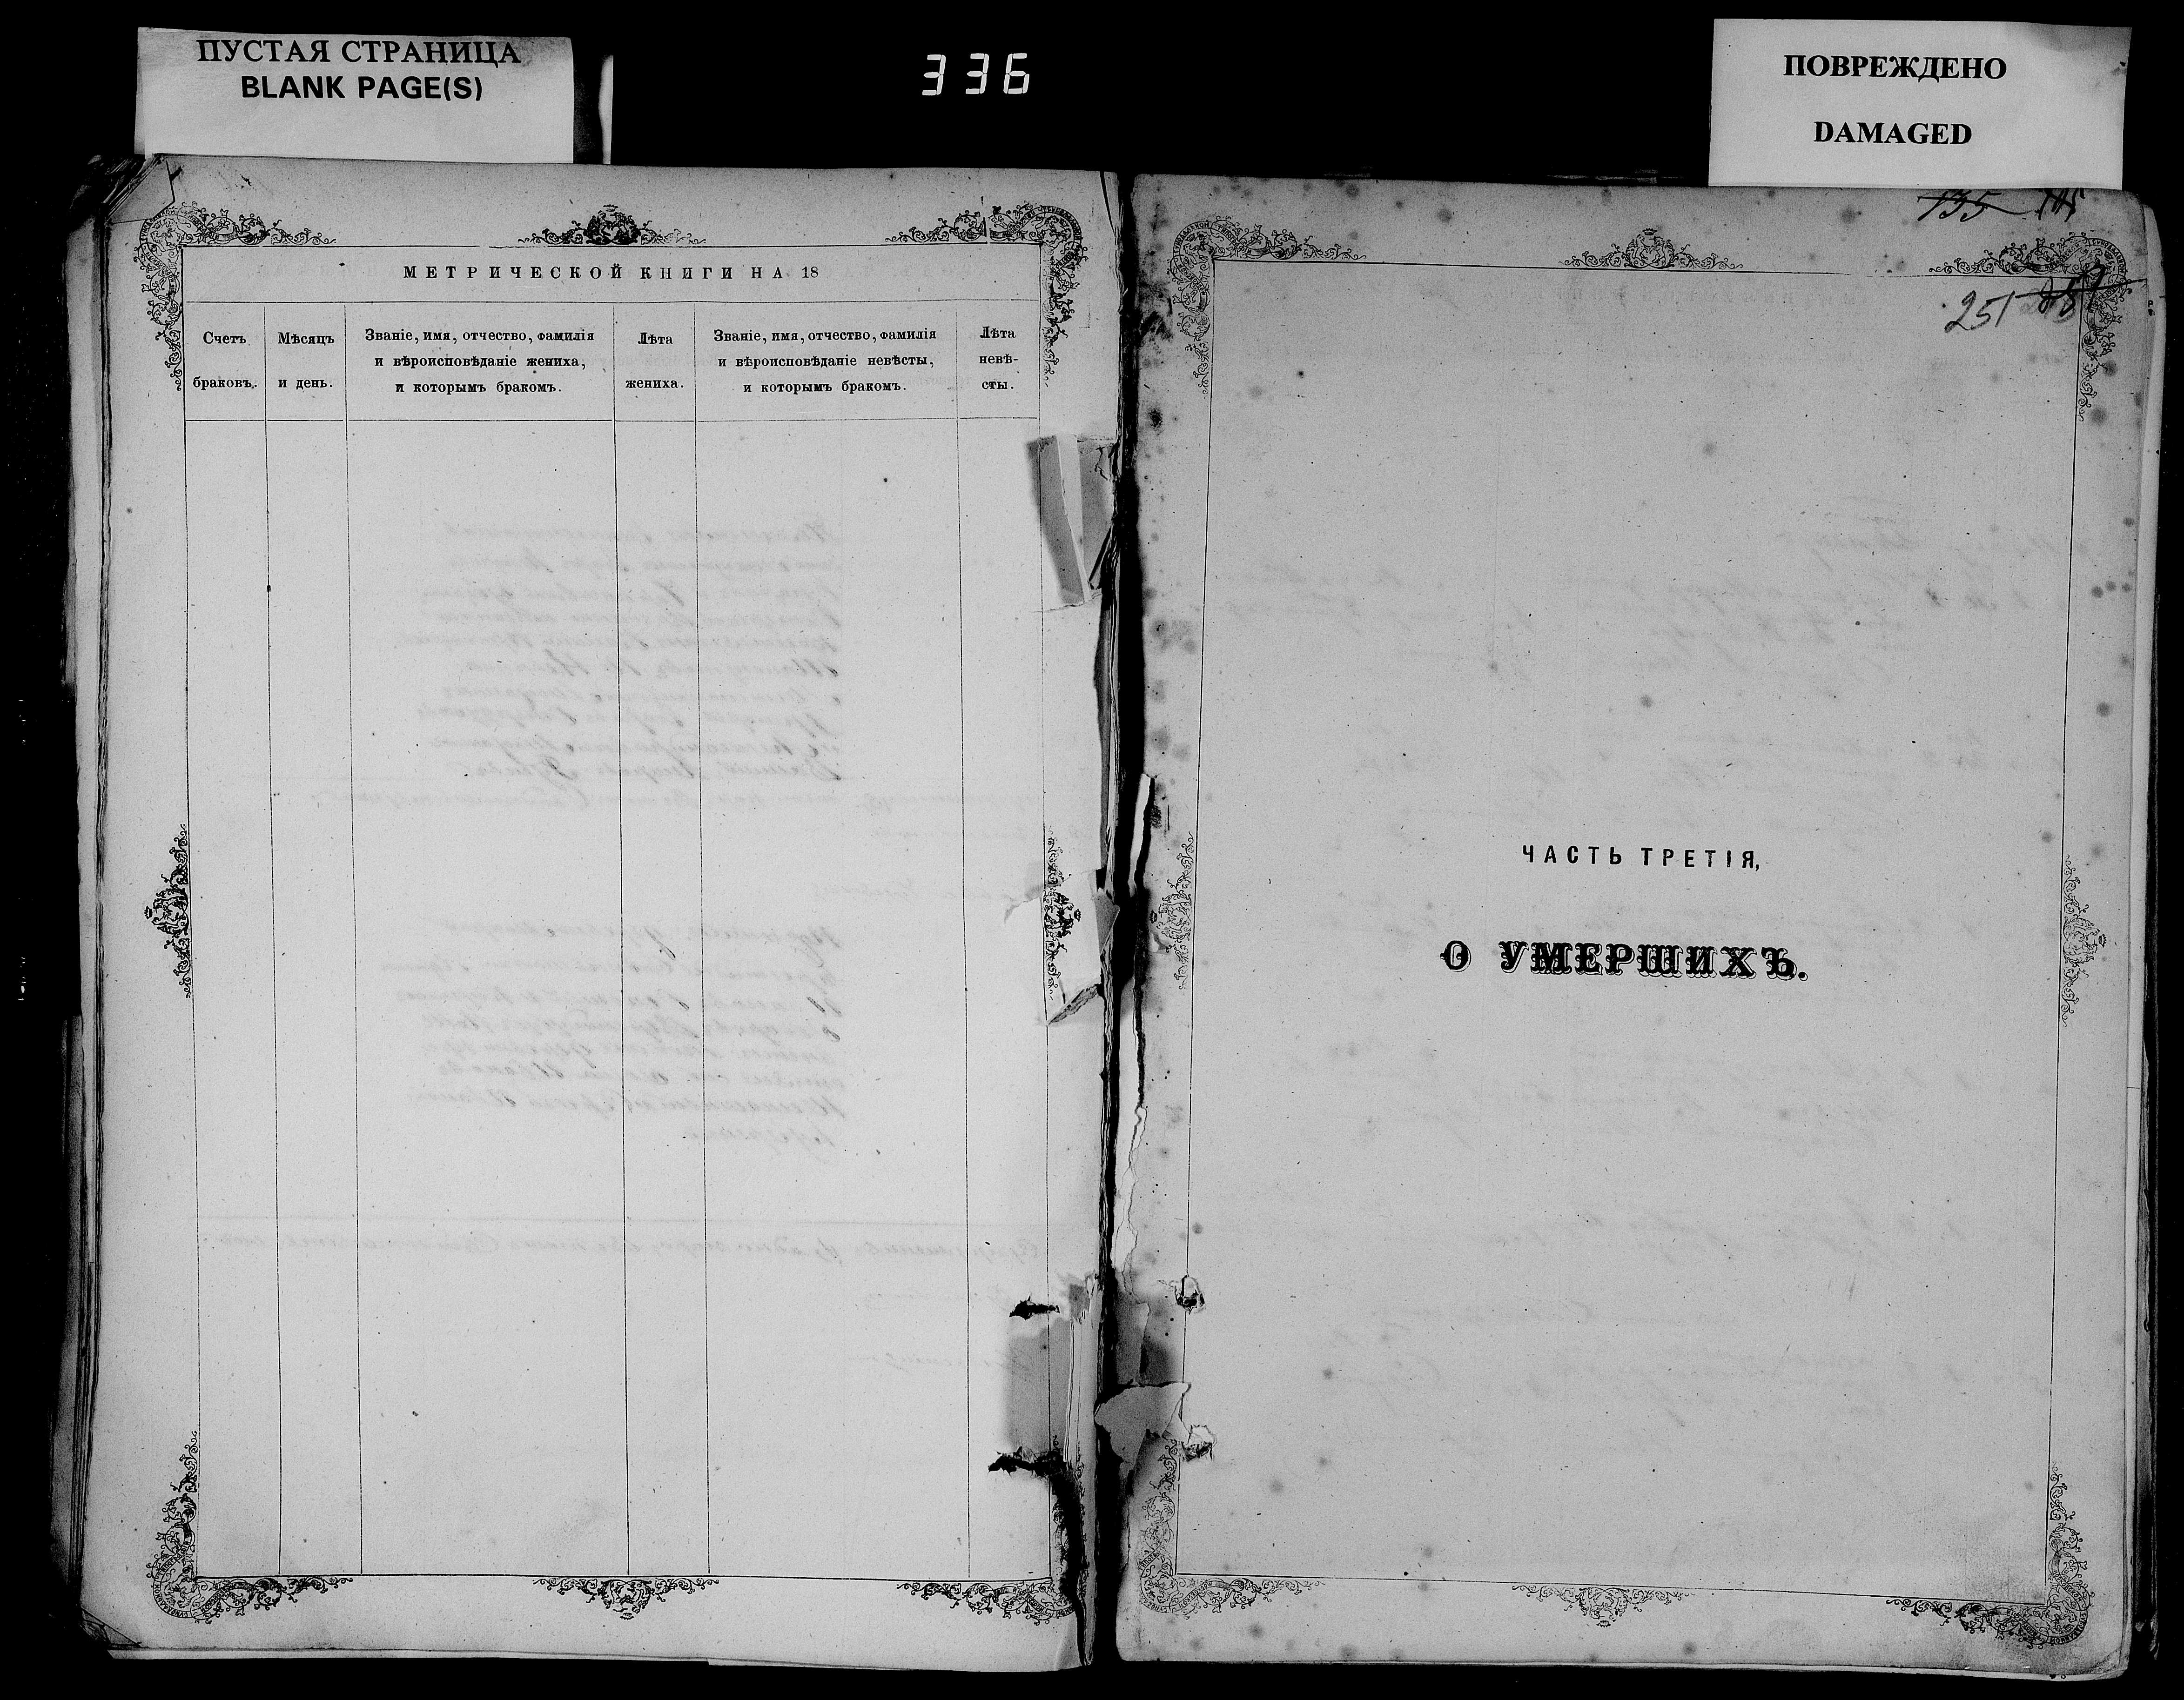 ПУСТАЯ СТРАНИЦА
BLANK PAGE(S)
336
ПОВРЕЖДЕНО
DAMAGED
МЕТРИЧЕСКОЙ КНИГИ НА 18
Счетъ браковъ.
Мѣсяцъ и день.
Званіе, имя, отчество, фамилія
и вѣроисповѣданіе жениха,
и которымъ бракомъ.
Лѣта жениха.
Званіе, имя, отчество, фамилія
и вѣроисповѣданіе невѣсты,
и которымъ бракомъ.
Лѣта
невѣ-
сты.
135
251
ЧАСТЬ ТРЕТІЯ,
О УМЕРШИХЪ.